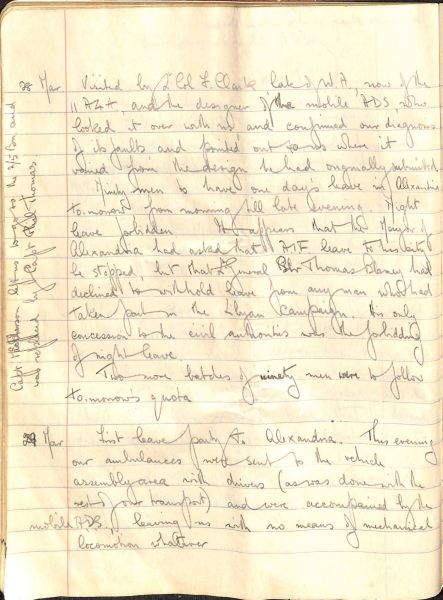 28 Mar. Visited by Lt Col F. Clark, late of W.A., now of the
11 AGH, and the designer of the mobile ADS, who
looked it over with us and confirmed our diagnosis
of its faults and pointed out to us where it
varied from the design he had originally submitted.
Ninety men to have one day's leave in Alexandria
to.morrow from morning till late evening. Night
leave forbidden. It appears that the Mayor of
Alexandria had asked that AIF leave to his city
be stopped, but that General Sir Thomas Blamey had
declined to withhold leave from any man who had
taken part in the Libyan campaign. His only
concession to the civil authorities was the forbidding
of night leave.
Two more batches of ninety men were to follow
to.morrow's quota
Mar First leave party to Alexandria. This evening
our ambulances were sent to the vehicle
assembly area with drivers (as was done with the
rest of our transport) and were accompanied by the
mobile ADS, leaving us with no means of mechanical
locomotion whatever
Capt left us to go to the 2/5 Bn and
was replaced by Capt Thomas.